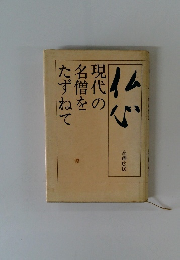 仏心
現代の
名僧を
たずねて